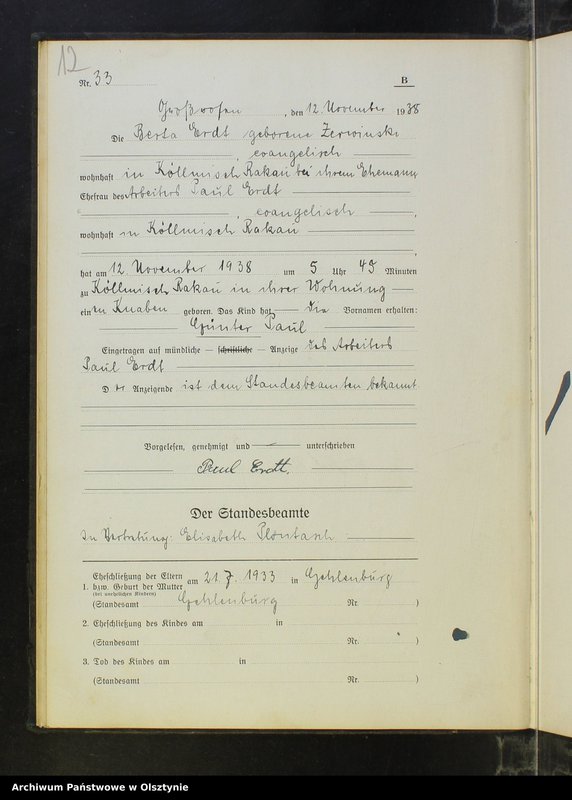 12
Nr. 33
B
Großrosen, den 12. November 1938
Die Berta Erdt geborene Zerwinski
, evangelisch
wohnhaft in Köllmisch Rakau bei ihrem Ehemann
Ehefrau des Arbeiters Paul Erdt
, evangelisch,
wohnhaft in Köllmisch Rakau
,
hat am 12. November 1938 um 5 Uhr 45 Minuten
zu Köllmisch Rakau in ihrer Wohnung
einen Knaben geboren. Das Kind hat die Vornamen erhalten:
Günter Paul
Eingetragen auf mündliche — schriftliche — Anzeige des Arbeiters
Paul Erdt
Der Anzeigende ist dem Standesbeamten bekannt
Vorgelesen, genehmigt und unterschrieben
Paul Erdt.
Der Standesbeamte
In Vertretung: Elisabeth
1. Eheschließung der Eltern bzw. Geburt der Mutter (bei unehelichen Kindern) am 21. 7. 1933 in Gehlenburg
(Standesamt Gehlenburg Nr )
2. Eheschließung des Kindes am in
(Standesamt Nr. )
3. Tod des Kindes am in
(Standesamt Nr. )
Archiwum Państwowe w Olsztynie